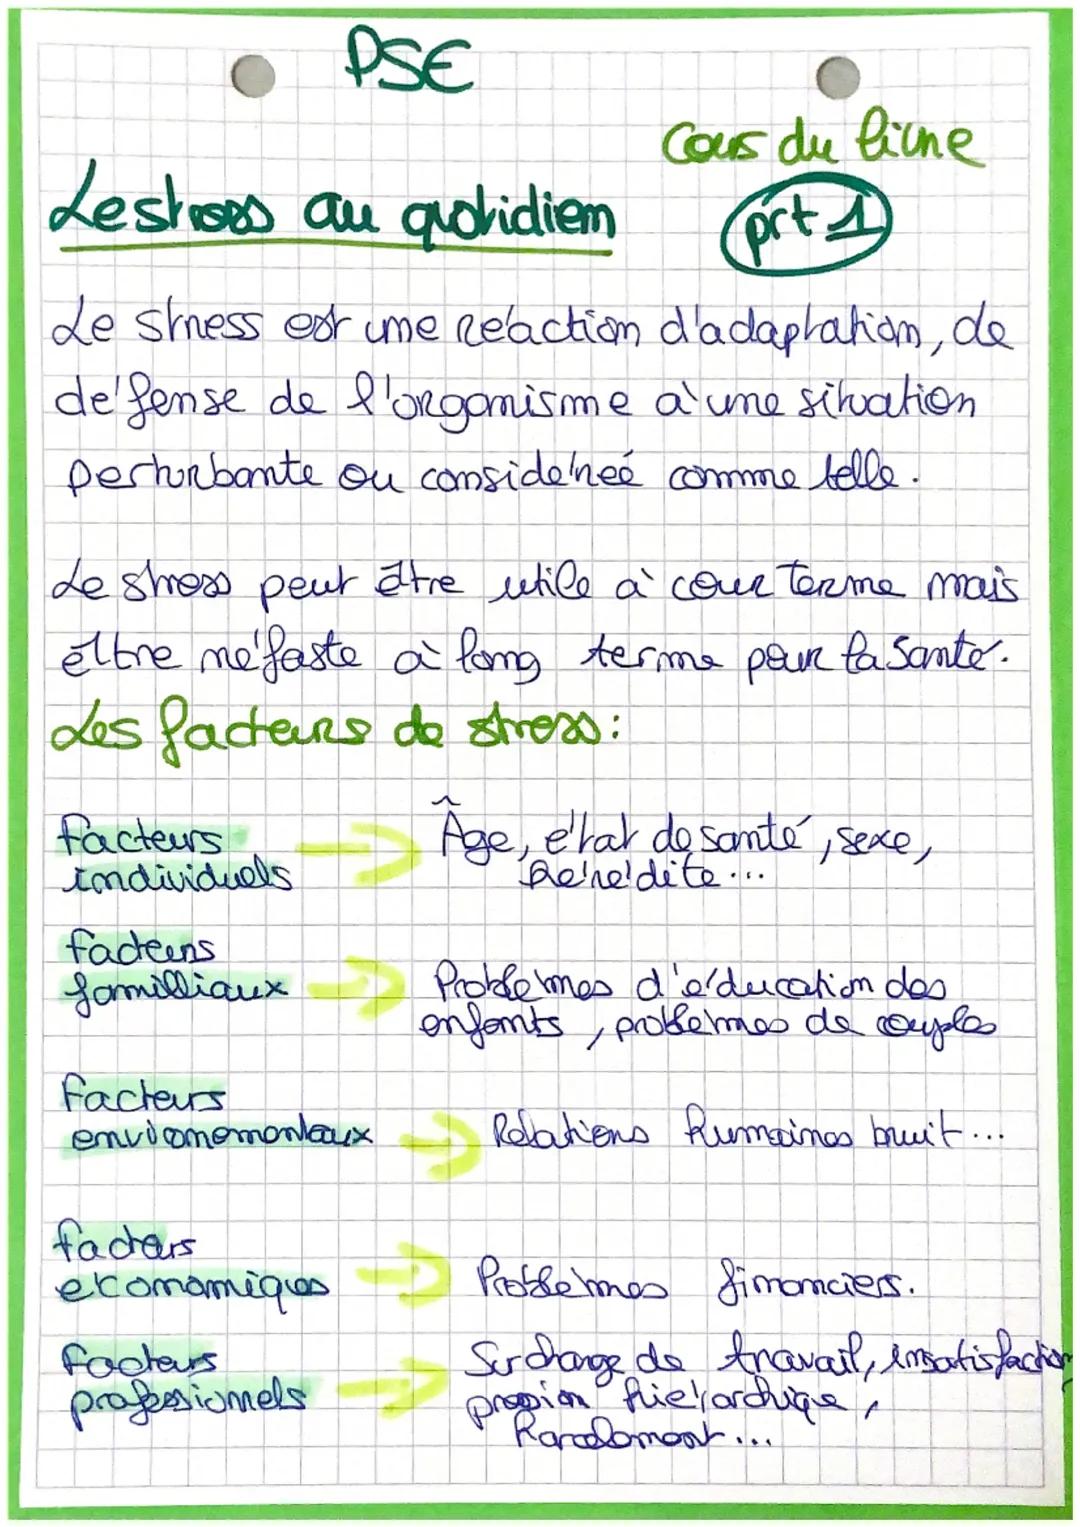 PSE
Cours du livre
Le stress au quotidien
prt 1
Le stress est une réaction d'adaptation, de
défense de l'organisme à une situation
perturbante ou considéreé comme telle.
Le stress peut être utile à cour terme mais
être néfaste à long terme pour la santé.
Les facteurs de stress:
facteurs
individuels
Âge, état de santé, sexe,
hérédité...
facteurs
familliaux
Problèmes d'éducation des
enfants, problèmes de couples
facteurs
environementaux
Relations humaines bruit...
facteurs
économiques
Problèmes financiers.
facteurs
professionnels
Surcharge de travail, insatisfaction
pression hiérarchique,
harcèlement...